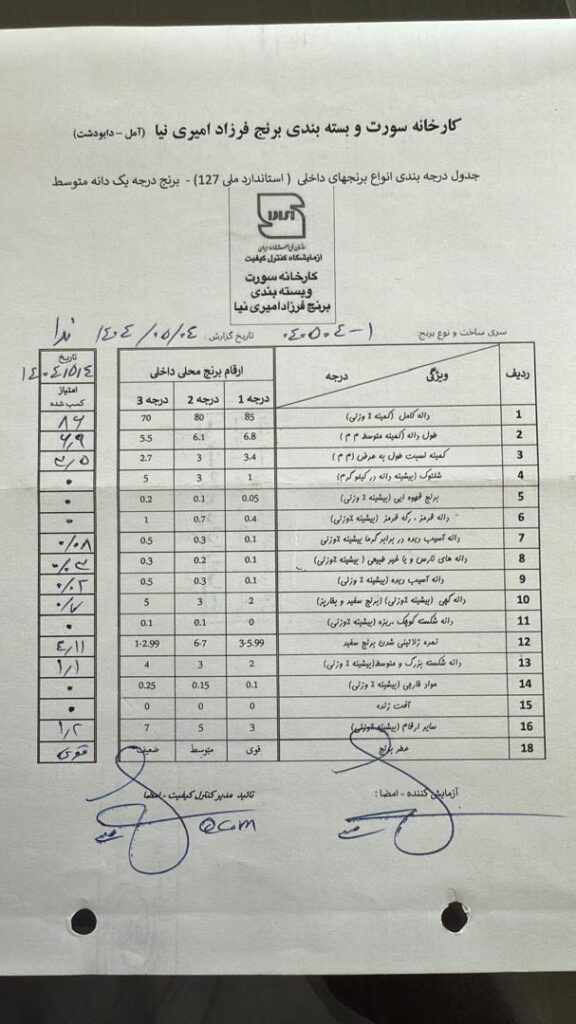 کارخانه سورت و بسته بندی برنج فرزاد امیری نیا (آمل – دابودشت)
جدول درجه بندی انواع برنجهای داخلی ( استاندارد ملی 127) - برنج درجه یک دانه متوسط
آزمایشگاه کنترل کیفیت
کارخانه سورت
وبسته بندی
برنج فرزادامیری نیا
سری ساخت و نوع برنج: ۰۴۰۵۰۴-۱ تاریخ گزارش: ۱۴۰۴/۰۵/۰۴ ندا
ردیف ویژگی درجه ارقام برنج محلی داخلی تاریخ ۱۴۰۴/۵/۴
درجه 1 درجه 2 درجه 3 امتیاز کسب شده
1 دانه کامل (کمینه ٪ وزنی) 85 80 70 ۸۶
2 طول دانه (کمینه متوسط م م) 6.8 6.1 5.5 ۶٫۹
3 کمینه نسبت طول به عرض (م م) 3.4 3 2.7 ۳٫۵
4 شلتوک (بیشینه دانه در کیلو گرم) 1 3 5 ۰
5 برنج قهوه ایی (بیشینه ٪ وزنی) 0.05 0.1 0.2 ۰
6 دانه قرمز ، رگه قرمز (بیشینه ٪وزنی) 0.4 0.7 1 ۰
7 دانه آسیب دیده در برابر گرما بیشینه ٪وزنی 0.1 0.3 0.5 ۰/۰۸
8 دانه های نارس و یا غیر طبیعی (بیشینه ٪ وزنی) 0.1 0.2 0.3 ۰/۰۳
9 دانه آسیب دیده (بیشینه ٪ وزنی) 0.1 0.3 0.5 ۰/۰۲
10 دانه گچی (بیشینه ٪وزنی) (برنج سفید و بخارپز) 2 3 5 ۰/۷
11 دانه شکسته کوچک ، ریزه (بیشینه ٪وزنی) 0 0.1 0.1 ۰
12 نمره ژلاتینی شدن برنج سفید 3-5.99 6-7 1-2.99 ۴٫۱۱
13 دانه شکسته بزرگ و متوسط (بیشینه ٪ وزنی) 2 3 4 ۱٫۱
14 مواد خارجی (بیشینه ٪ وزنی) 0.1 0.15 0.25 ۰
15 آفت زنده 0 0 0 ۰
16 سایر ارقام (بیشینه ٪وزنی) 3 5 7 ۱٫۲
18 عطر برنج قوی متوسط ضعیف قوی
آزمایش کننده - امضا : تائید مدیر کنترل کیفیت - امضا
QCM